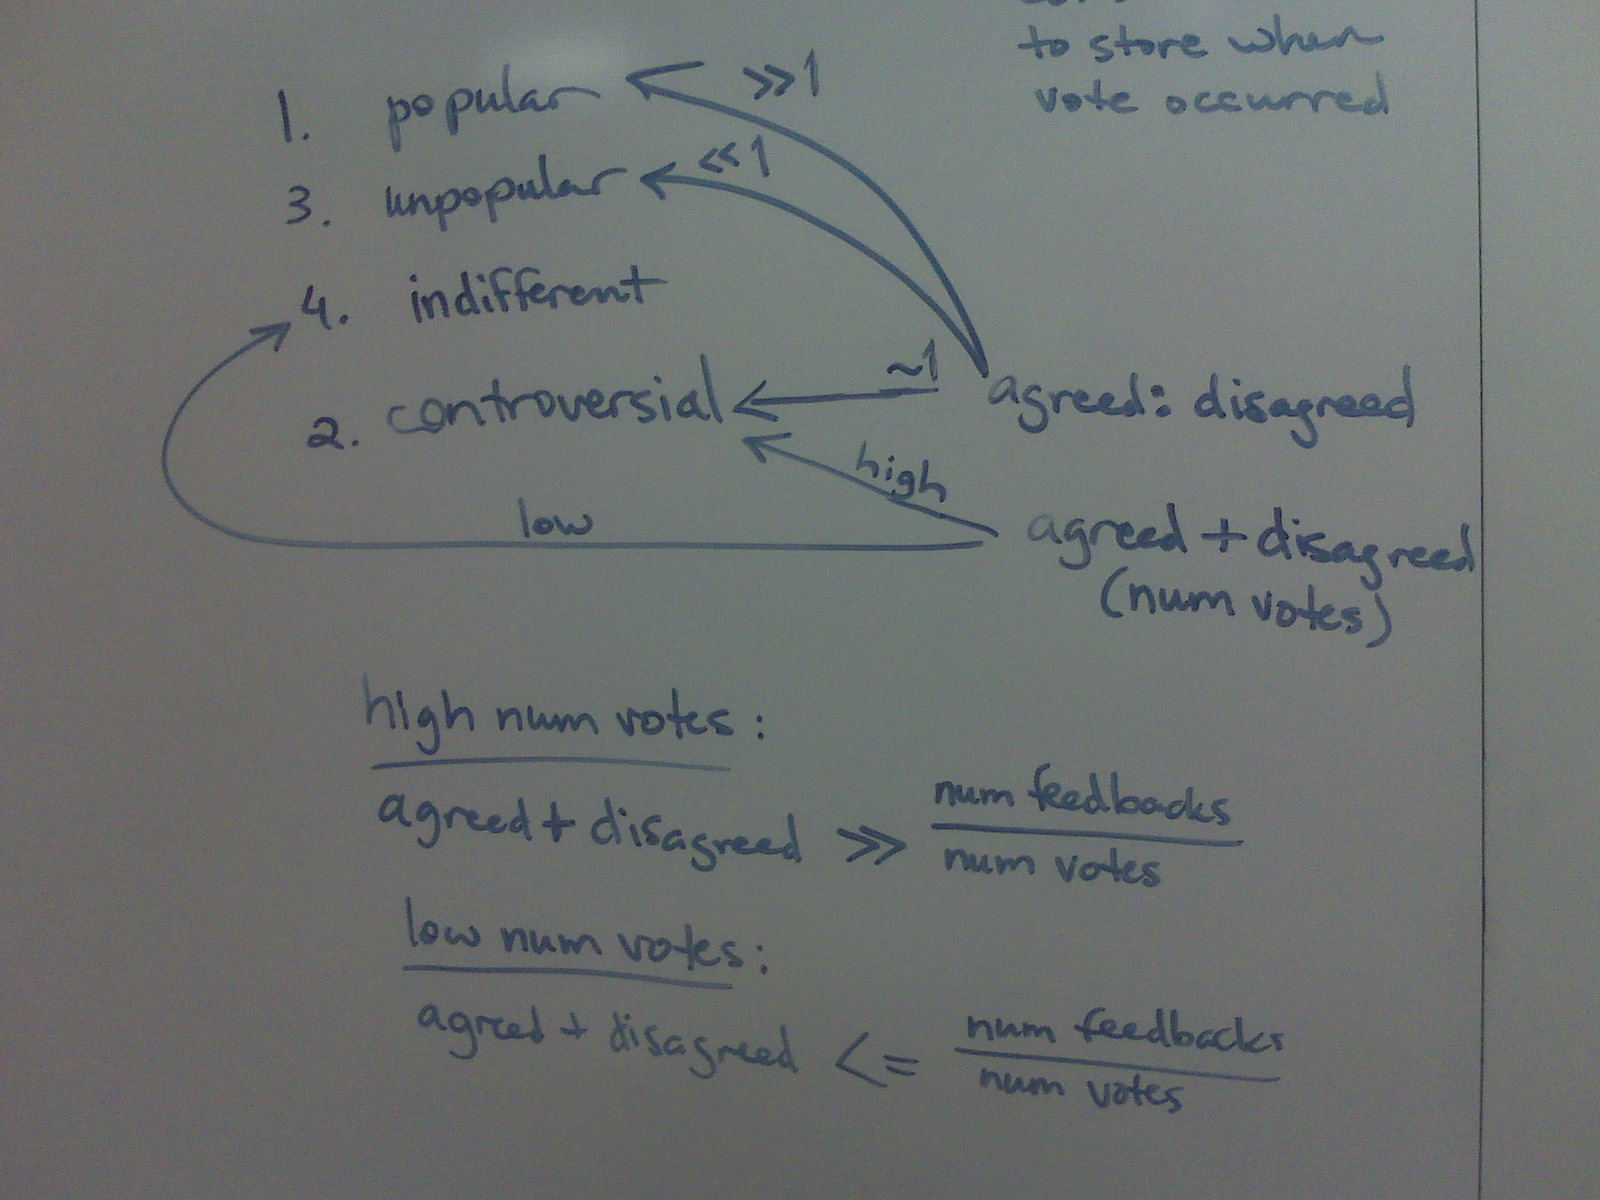 to store when
vote occurred
1. popular >>1
3. unpopular <<1
4. indifferent
2. controversial ~1 agreed: disagreed
high
low agreed + disagreed
(num votes)
high num votes:
agreed + disagreed >> num feedbacks
num votes
low num votes:
agreed + disagreed <= num feedbacks
num votes